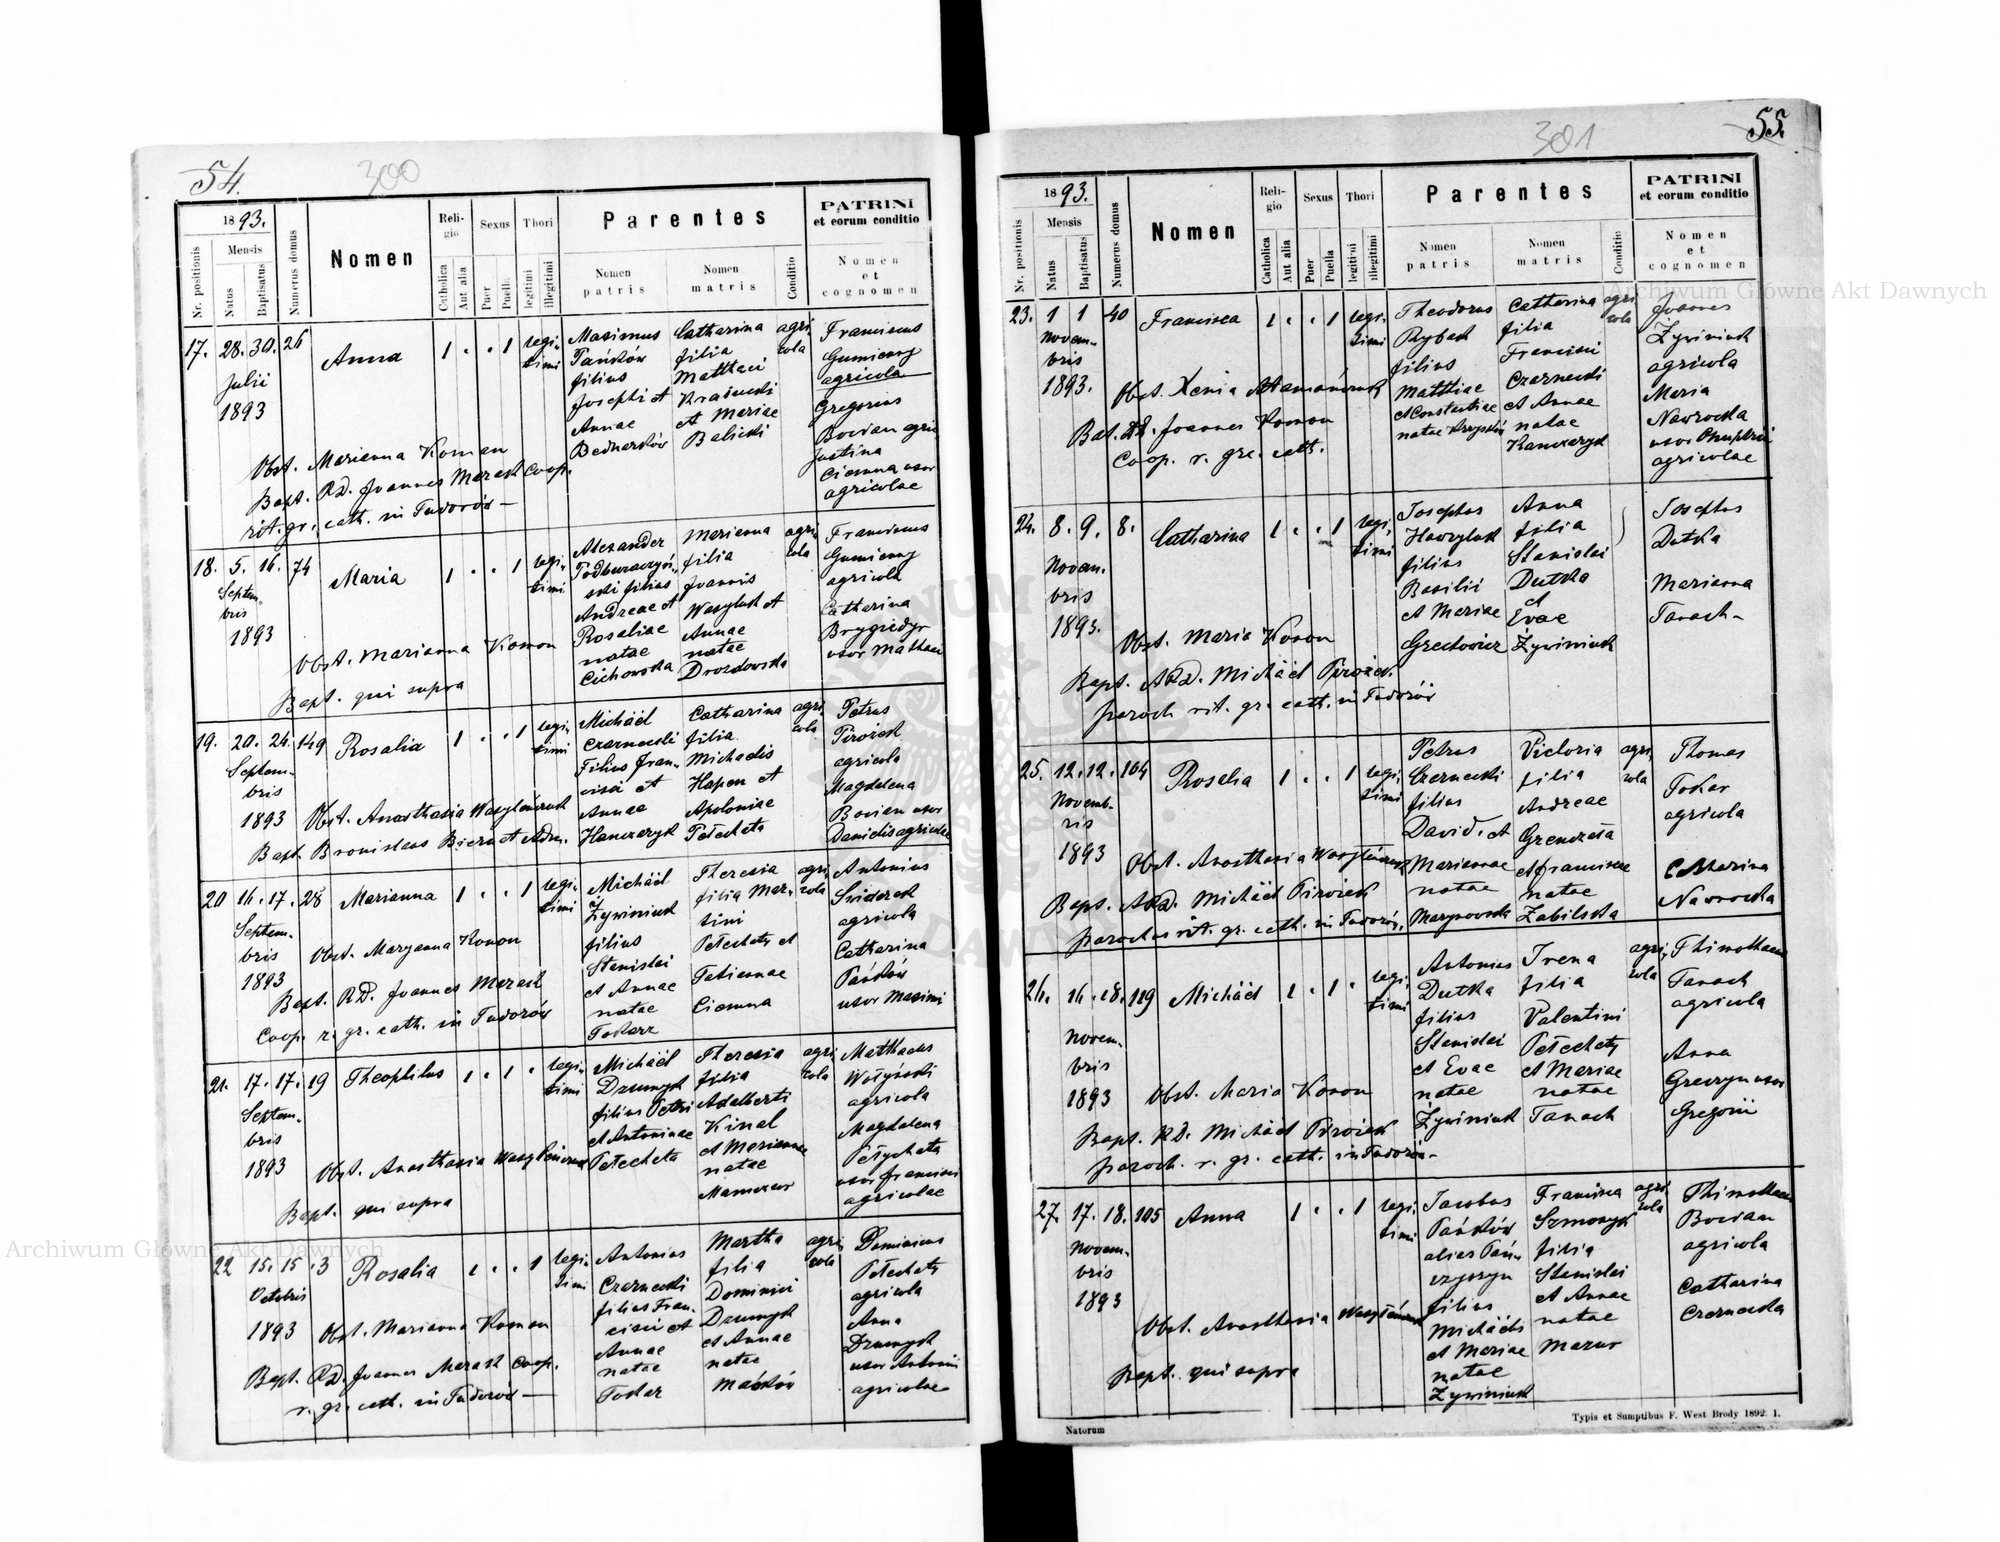 54.
300
1893.
Nr. positionis
Mensis
Natus
Baptisatus
Numerus domus
Nomen
Religio
Catholica
Aut alia
Sexus
Puer
Puella
Thori
legitimi
illegitimi
Parentes
Nomen patris
Nomen matris
Conditio
PATRINI
et eorum conditio
Nomen
et
cognomen
17. 28. 30. 26 Anna 1 . . 1 legitimi
Julii
1893
Maximus
Pańków
filius
Josephi et
Annae
Bednarków
Catharina
filia
Matthaei
Krasucki
et Mariae
Balicki
agricola
Franciscus
Gumienny
agricola
Gregorius
Bocian agric
Justina
Ciemna uxor
agricolae
Obst. Marianna Koman
Bapt. RD. Joannes Marach Coop.
rit. gr. cath. in Tudorów —
18. 5. 16. 74 Maria 1 . . 1 legitimi
Septembris
1893
Alexander
filius
Andreae et
Rosaliae
natae
Cichowska
Marianna
filia
Joannis
Wasyluk et
Annae
natae
Drozdowska
agricola
Franciscus
Gumienny
agricola
Catharina
Brygidyr
uxor Mathaei
Obst. Marianna Komon
Bapt. qui supra
19. 20. 24. 149 Rosalia 1 . . 1 legitimi
Septembris
1893
Michäel
Czarnecki
Filius Francisci et
Annae
Hanczaryk
Catharina
filia
Michaelis
Hapon et
Apoloniae
Petecheta
agricola
Petrus
Pirożek
agricola
Magdalena
Bocian uxor
Danielis agricolae
Obst. Anasthasia Wasylińczuk
Bapt. Bronislaus Biernat Adm.
20 16. 17. 28 Marianna 1 . . 1 legitimi
Septembris
1893
Michäel
Żywiniuk
filius
Stanislai
et Annae
natae
Tokarz
Theresia
filia Martini
Petechaty et
Tatiannae
Ciemna
agricola
Antonius
Sviderek
agricola
Catharina
Pańków
uxor Maximi
Obst. Maryanna Konon
Bapt. RD. Joannes Marach
Coop. r. gr. cath. in Tudorów
21. 17. 17. 19 Theophilus 1 . 1 . legitimi
Septembris
1893
Michäel
Dzumyk
filius Petri
et Antoninae
Petecheta
Theresia
filia
Adalberti
Kinal
et Mariannae
natae
agricola
Matthaeus
Wołyński
agricola
Magdalena
Petycheta
uxor Francisci
agricolae
Obst. Anasthasia Wasylińczuk
Bapt. qui supra
22 15. 15 . 3 Rosalia 1 . . 1 legitimi
Octobris
1893
Antonius
Czarnecki
filius Francisci et
Annae
natae
Tokar
Martha
filia
Dominici
Dzumyk
et Annae
natae
Maśków
agricola
Dominicus
Petechaty
agricola
Anna
Dzumyk
uxor Antonii
agricolae
Obst. Marianna Koman
Bapt. RD. Joannes Marach Coop.
r. gr. cath. in Tudorów —
55.
301
1893.
Nr. positionis
Mensis
Natus
Baptisatus
Numerus domus
Nomen
Religio
Catholica
Aut alia
Sexus
Puer
Puella
Thori
legitimi
illegitimi
Parentes
Nomen patris
Nomen matris
Conditio
PATRINI
et eorum conditio
Nomen
et
cognomen
23. 1 1 40 Francisca 1 . . 1 legitimi
Novembris
1893.
Theodorus
Rybak
filius
Matthiae
et Constantiae
natae
Catharina
filia
Francisci
Czarnecki
et Annae
natae
Hanczaryk
agricola
Joannes
Żywiniuk
agricola
Maria
Nawrocka
uxor
agricolae
Obst. Xenia Atamańczuk
Bat. RD. Joannes Komon
Coop. r. gre. cath.
24. 8. 9. 8. Catharina 1 . . 1 legitimi
Novembris
1893.
Josephus
Hawryluk
filius
Basilii
et Mariae
Grechowicz
Anna
filia
Stanislai
Dutka
et
Evae
Żywiniuk
Josephus
Dutka
Marianna
Tanach -
Obst. Maria Konon
Bapt. ARD. Michäel Pirożek
paroch rit. gr. cath. in Tudorów
25. 12. 12. 104 Rosalia 1 . . 1 legitimi
Novembris
1893
Petrus
Czarnecki
filius
David. et
Mariannae
natae
Marynowska
Victoria
filia
Andreae
et Franciscae
natae
Zabilska
agricola
Thomas
Tokar
agricola
Catharina
Nawrocka
Obst. Anasthasia Wasylińczuk
Bapt. ARD. Michäel Pirożek
parochus rit. gr. cath. in Tudorów.
26. 16. 18. 119 Michäel 1 . 1 . legitimi
Novembris
1893
Antonius
Dutka
filius
Stanislai
et Evae
natae
Żywiniuk
Irena
filia
Valentini
Petechaty
et Mariae
natae
Tanach
agricola
Thimotheus
Tanach
agricola
Anna
Grevryn uxor
Gregorii
Obst. Maria Konon
Bapt. RD. Michäel Pirożek
paroch. r. gr. cath. in Tudorów -
27. 17. 18. 105 Anna 1 . . 1 legitimi
Novembris
1893
Jacobus
Pańków
alias
filius
Michäelis
et Mariae
natae
Żywiniuk
Francisca
Szmoryk
filia
Stanislai
et Annae
natae
Mazur
agricola
Thimotheus
Bocian
agricola
Catharina
Czarnecka
Obst. Anasthasia Wasylińczuk
Bapt. qui supra
Natorum
Typis et Sumptibus F. West Brody 1892. I.
Archiwum Główne Akt Dawnych
Archiwum Główne Akt Dawnych